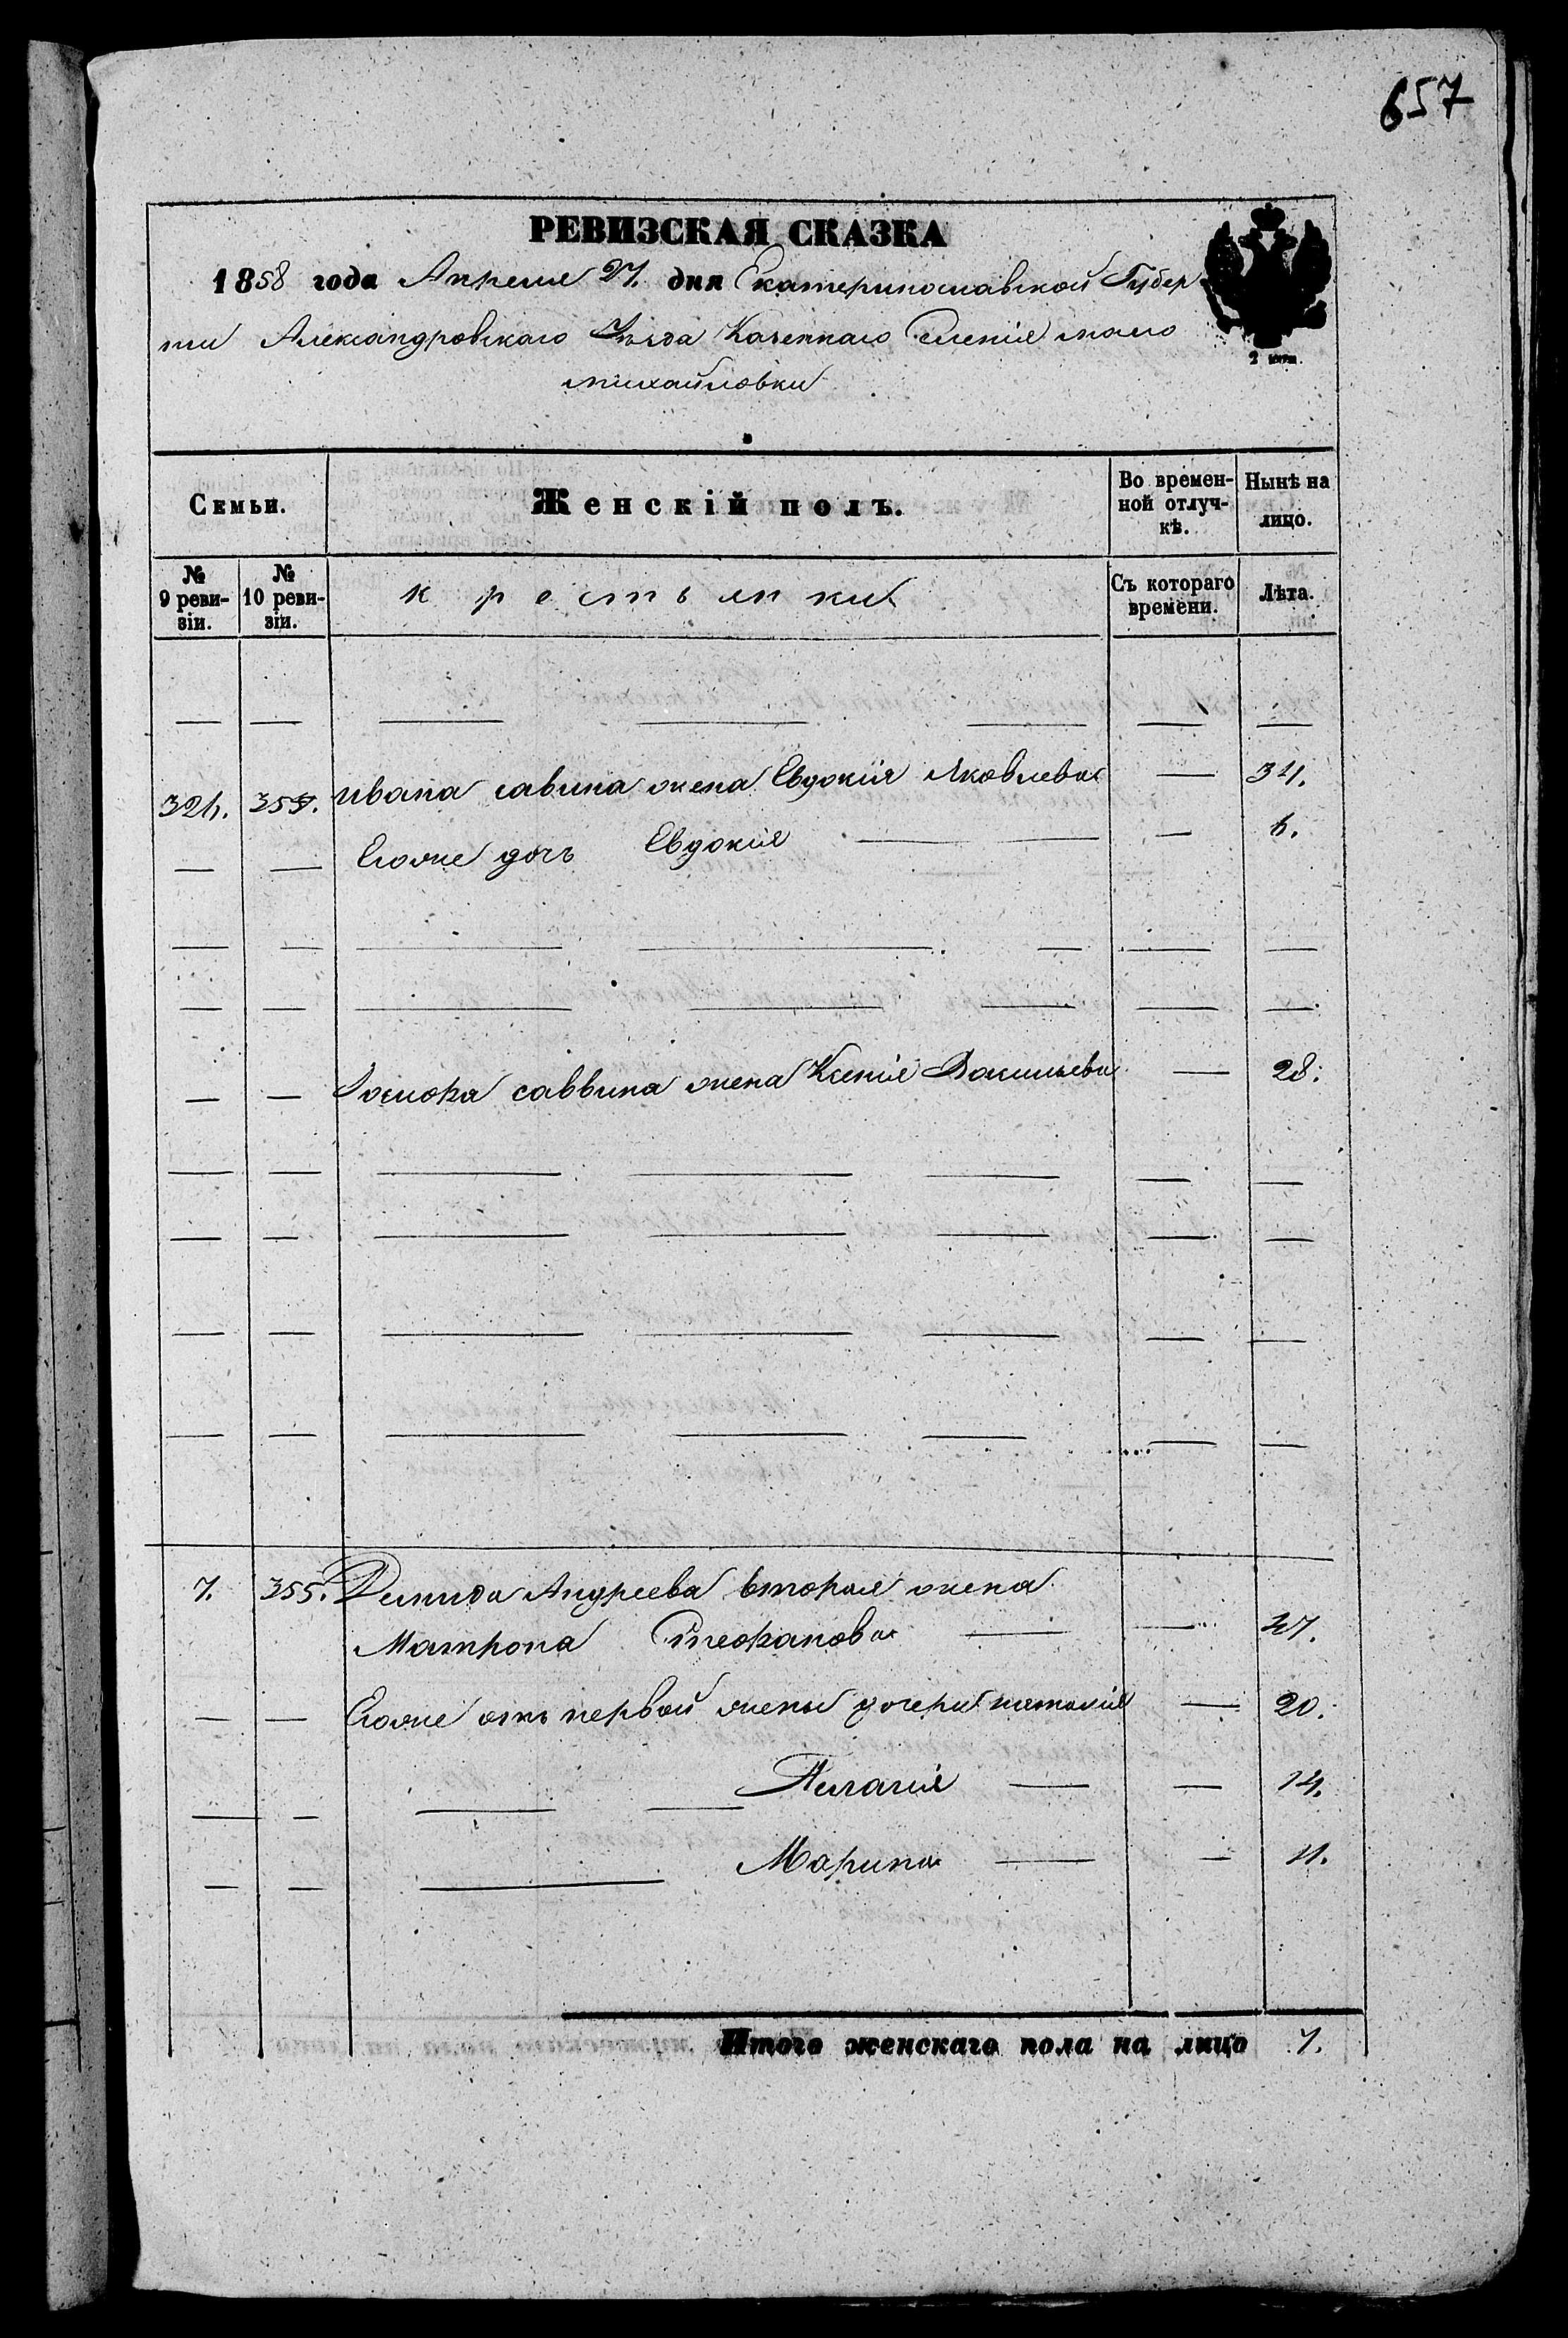 657
РЕВИЗСКАЯ СКАЗКА
1858 года Апреля 27. дня Екатеринославской Губер
нии Александровскаго Уезда Казеннаго Селенія мало
михайловки
Семьи. Женскій полъ. Во времен- Нынѣ на
ной отлуч- лицо.
кѣ.
№ 9 реви-зіи. № 10 реви-зіи. крестьянки Съ котораго времени. Лѣта.
— — — — — — —
324. 354. ивана савина жена Евдокия Яковлева — 34.
— — Егоже дочъ Евдокия — — — 4.
— — — — — — —
— — — — — — —
— — саввина жена Ксения Васильева — 28.
— — — — — — —
— — — — — — —
— — — — — — —
— — — — — — —
7. 355. Демида Андреева вторая жена
Матрона Стефанова — — 37.
— — Егоже отъ первой жены дочери наталия — 20.
— — — — Пелагия — — 14.
— — — Марина — — 11.
Итого женскаго пола на лицо 7.